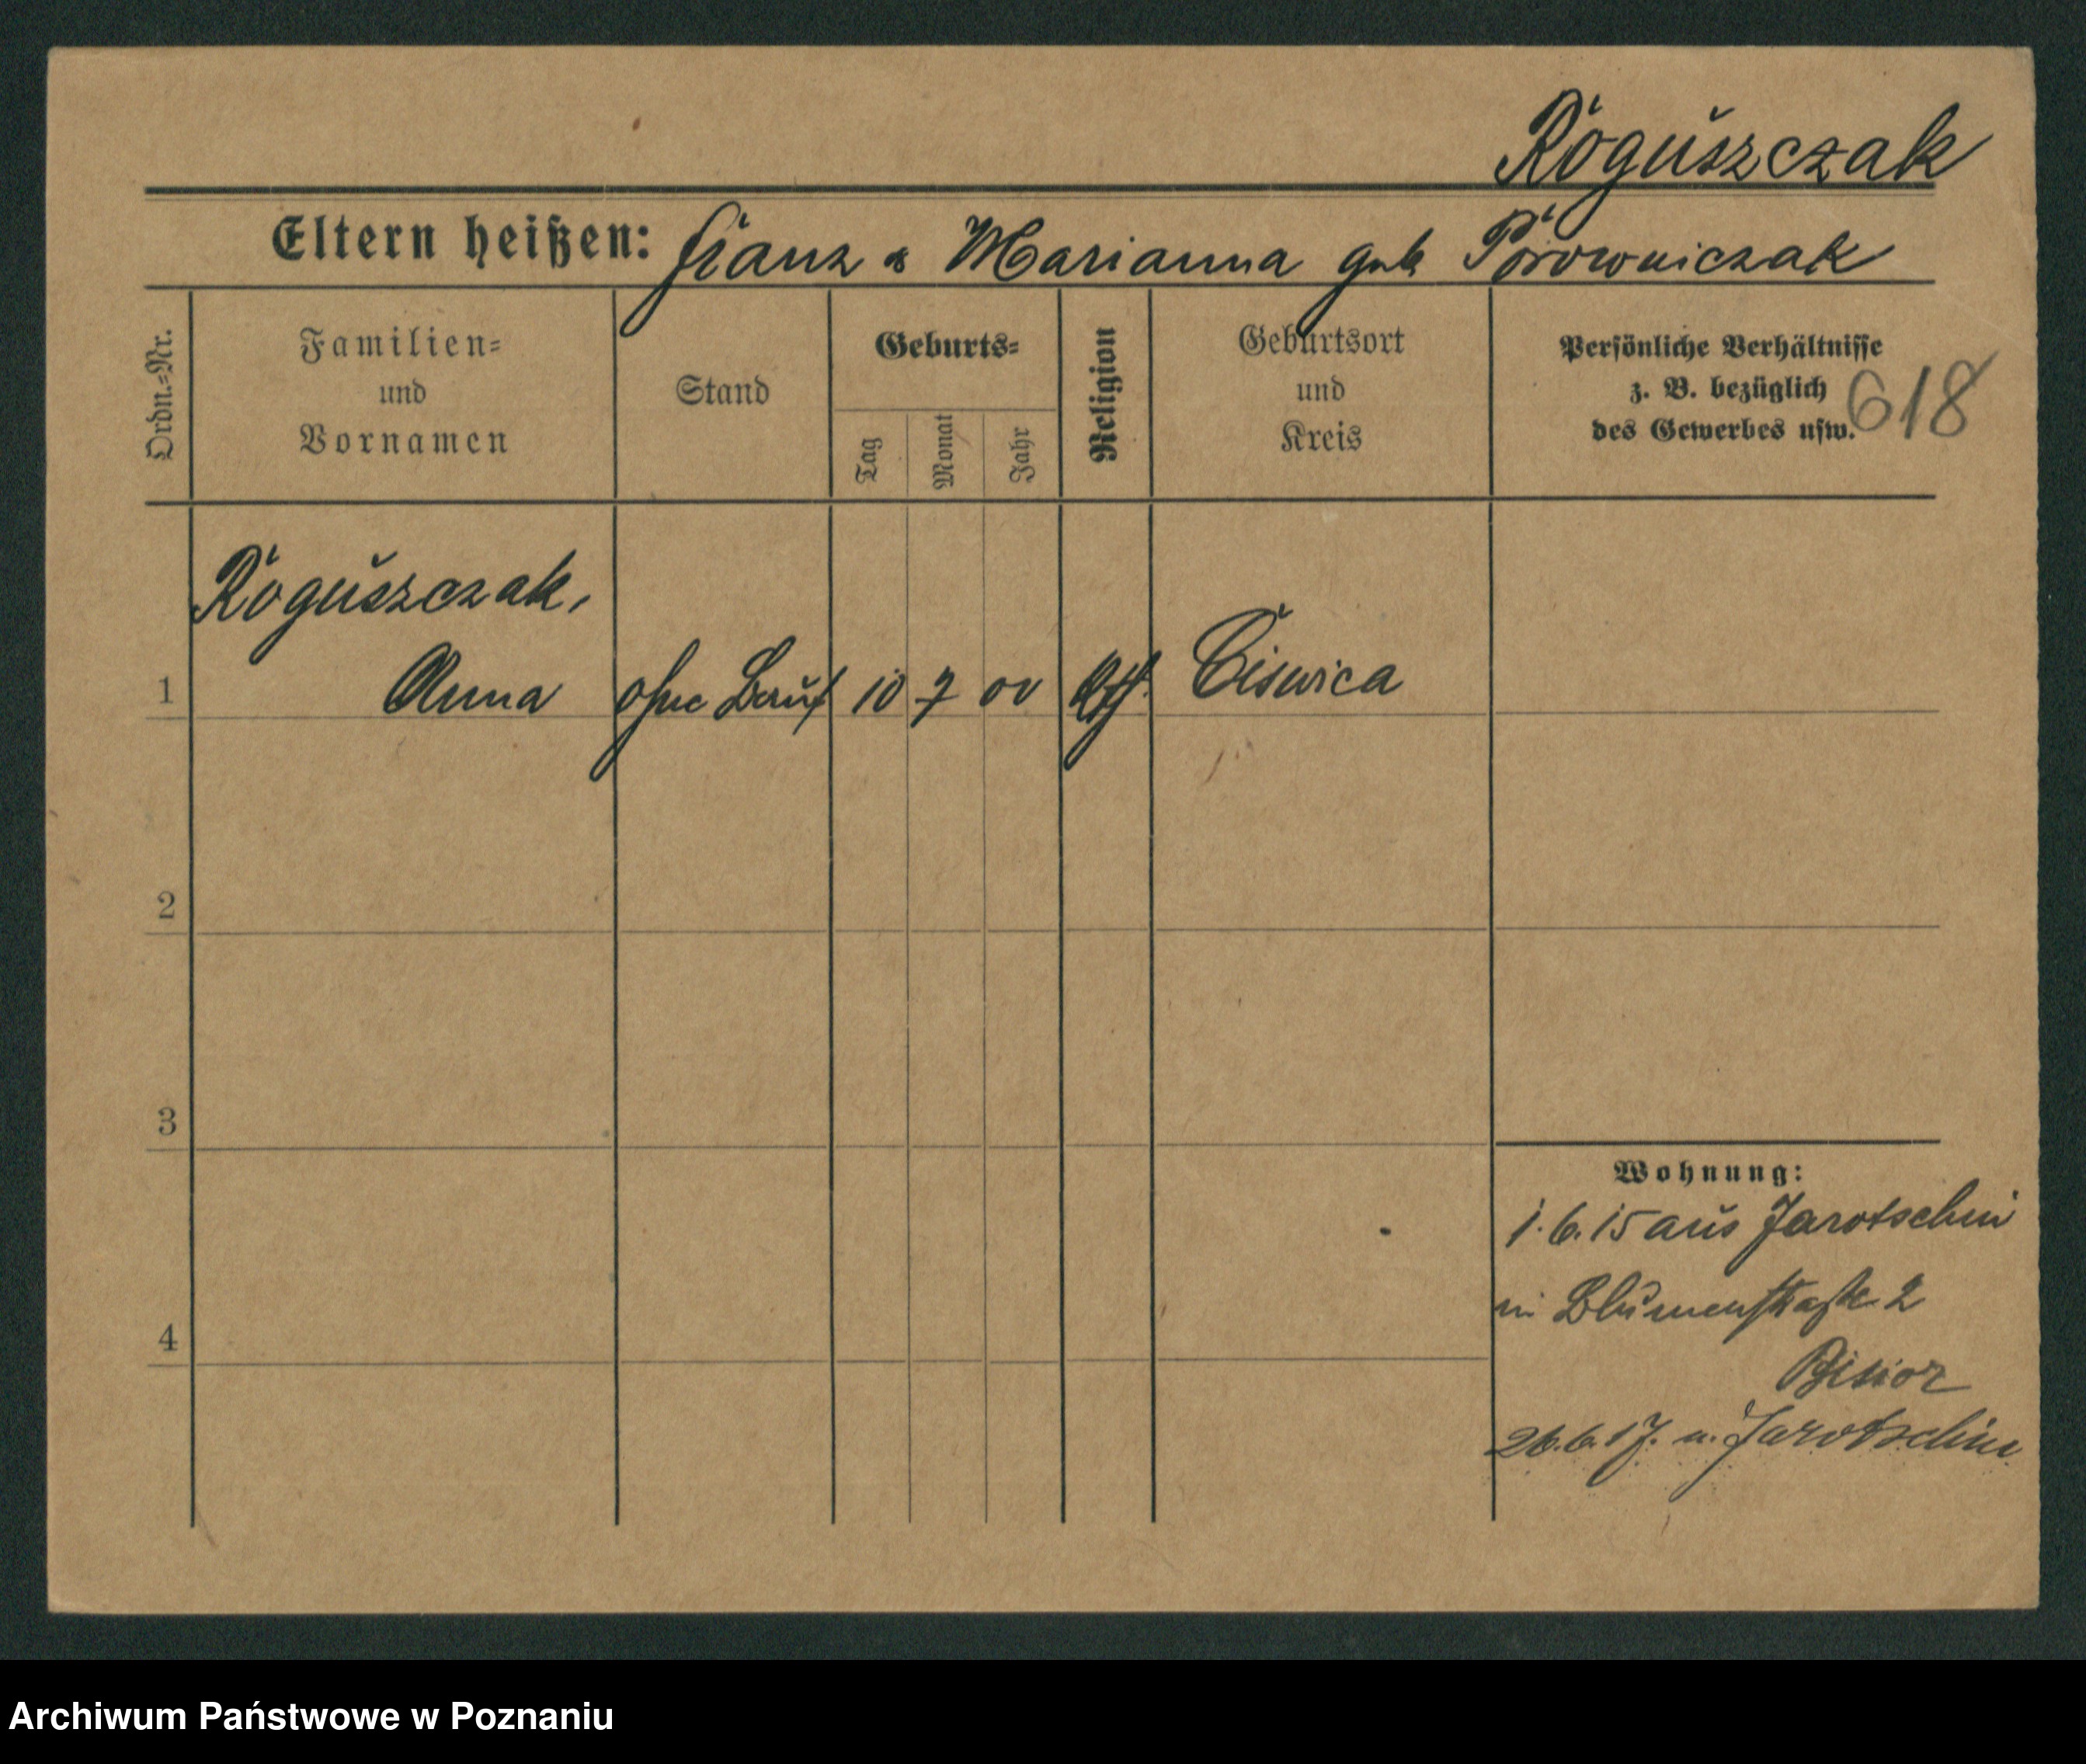 Roguszczak
Eltern heißen: Franz & Marianna geb Porowniczak
Ordn.-Nr.
Familien-
und
Vornamen
Stand
Geburts-
Tag
Monat
Jahr
Religion
Geburtsort
und
Kreis
Persönliche Verhältnisse
z. B. bezüglich
des Gewerbes usw.
618
Roguszczak,
1 Anna ohne Beruf 10 7 00 kth. Ciswica
2
3
4
Wohnung:
1. 6. 15 aus Jarotschin
in Blumenstraße 2
26. 6. 17. n. Jarotschin
Archiwum Państwowe w Poznaniu